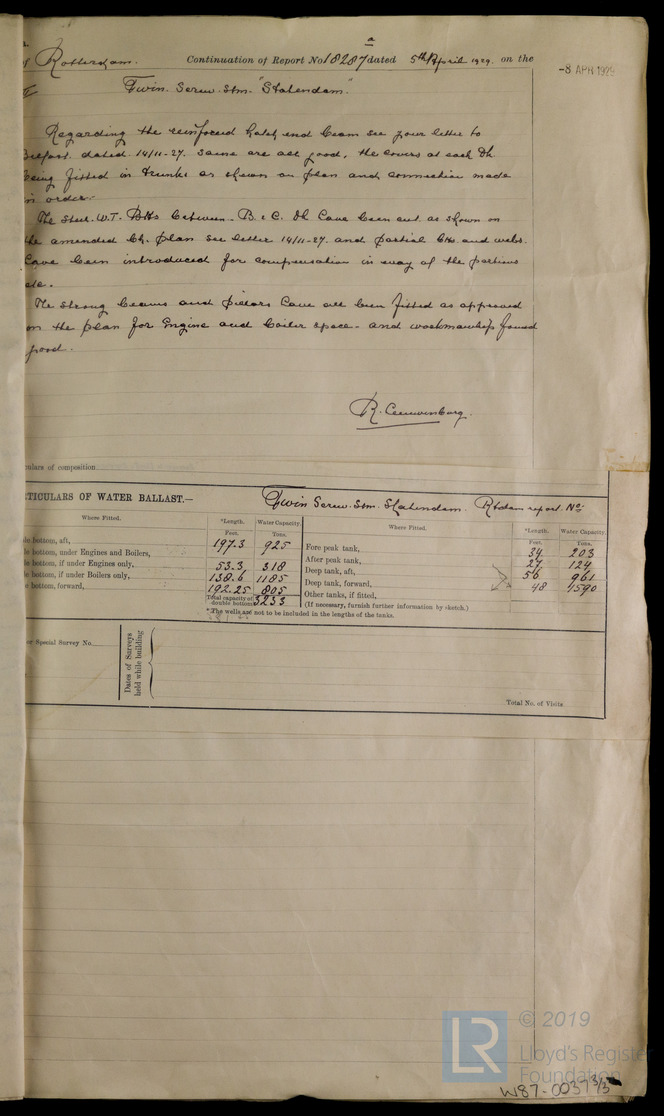 a
Rotterdam. Continuation of Report No 18287 dated 5th April 1929. on the
-8 APR 1929
Twin. Screw. Stm. "Statendam".
Regarding the reinforced hatch end beam see your letter to
Belfast dated 14/11-27. same are all good, the covers at each Dk
being fitted in trunks as shown on plan and connection made
in order.
The Steel. W.T. Bhds between B & C. Dk have been cut as shown on
the amended plan see letter 14/11-27. and partial Bhs. and webs.
have been introduced for compensation in way of the portions
The strong beams and pillars have all been fitted as approved
on the plan for Engine and boiler space - and workmanship found
good.
R. Leeuwenburg.
culars of composition
TICULARS OF WATER BALLAST.—
Twin Screw. Stm. Statendam. Rtdam report. No:
Where Fitted. *Length. Water Capacity. Where Fitted. *Length. Water Capacity.
Feet. Tons. Feet. Tons.
le bottom, aft, 197.3 925 Fore peak tank, 34 203
e bottom, under Engines and Boilers, After peak tank, 27 124
le bottom, if under Engines only, 53.3 318 Deep tank, aft, 56 961
le bottom, if under Boilers only, 138.6 1185 Deep tank, forward, 48 1590
e bottom, forward, 192.25 805 Other tanks, if fitted,
Total capacity of double bottom 3233 (If necessary, furnish further information by sketch.)
* The wells are not to be included in the lengths of the tanks.
er Special Survey No.
Dates of Surveys held while building
Total No. of Visits
LR © 2019
Lloyd's Register
Foundation
W87-0037 3/3